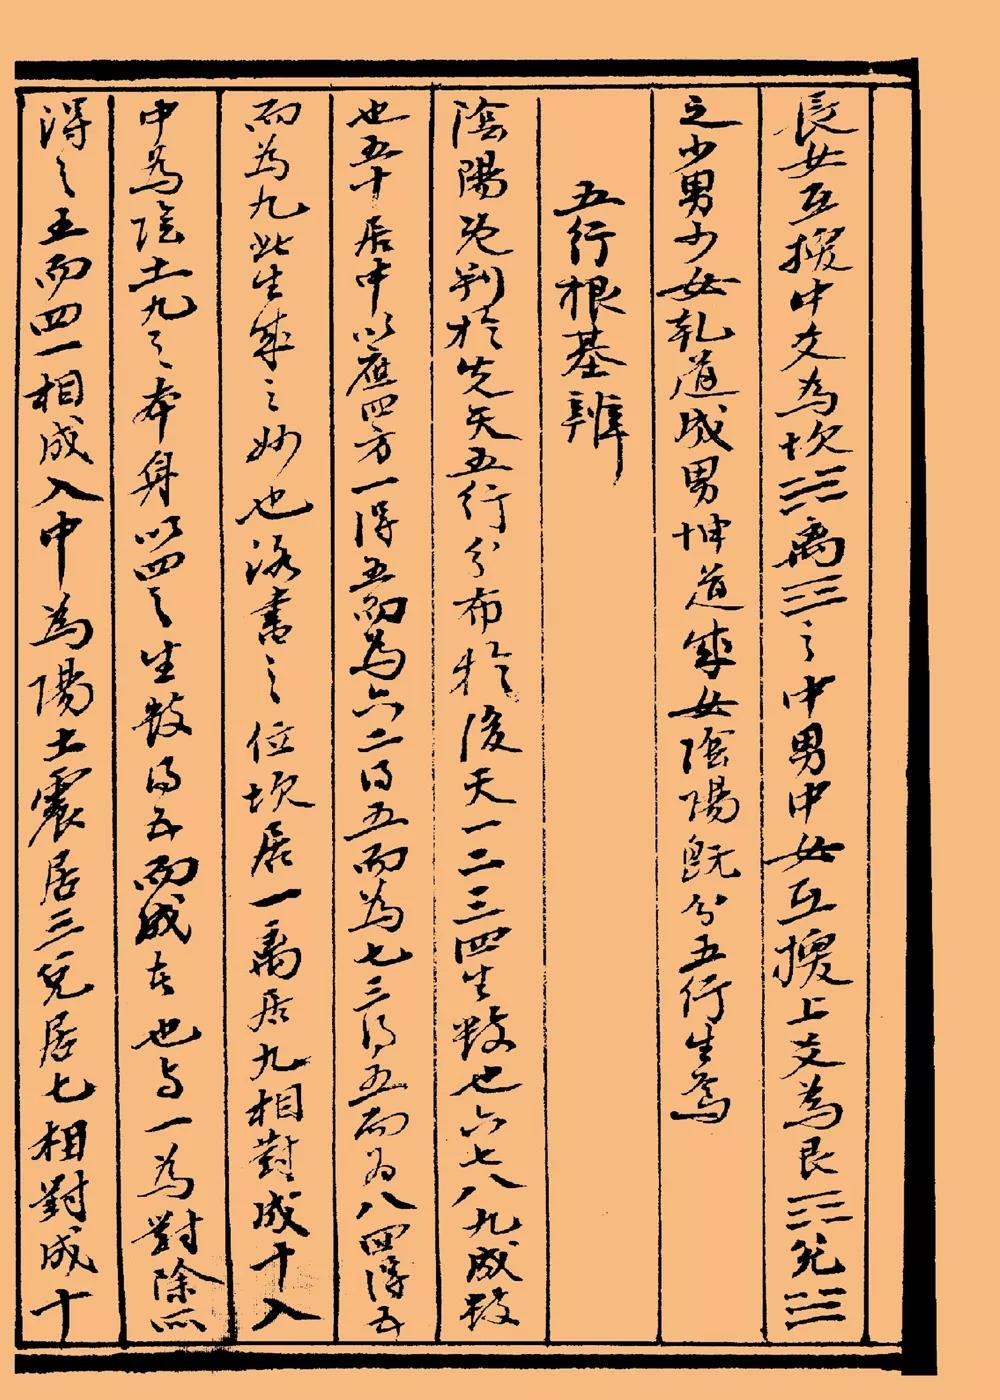 長女互搜中爻為坎☵離☲之中男中女互搜上爻為艮☶兌☱
之少男少女乾道成男坤道成女陰陽既分五行生焉
五行根基辨
陰陽既判於先天五行分布於後天一二三四生數也六七八九成數
也五十居中以應四方一得五而為六二得五而為七三得五而為八四得五
而為九此生成之妙也洛書之位坎居一離居九相對成十入
中為陰土九之本身以四之生數得五而成者也与一為對除所
得之五而四一相成入中為陽土震居三兌居七相對成十